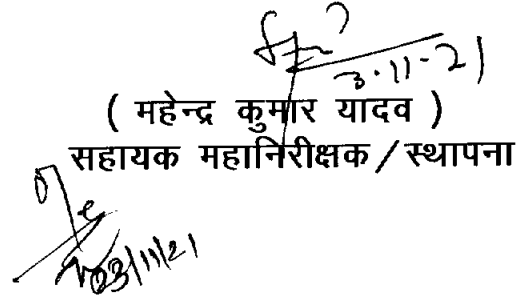 3.11-21
( महेन्द्र कुमार यादव )
सहायक महानिरीक्षक / स्थापना
03/11/21